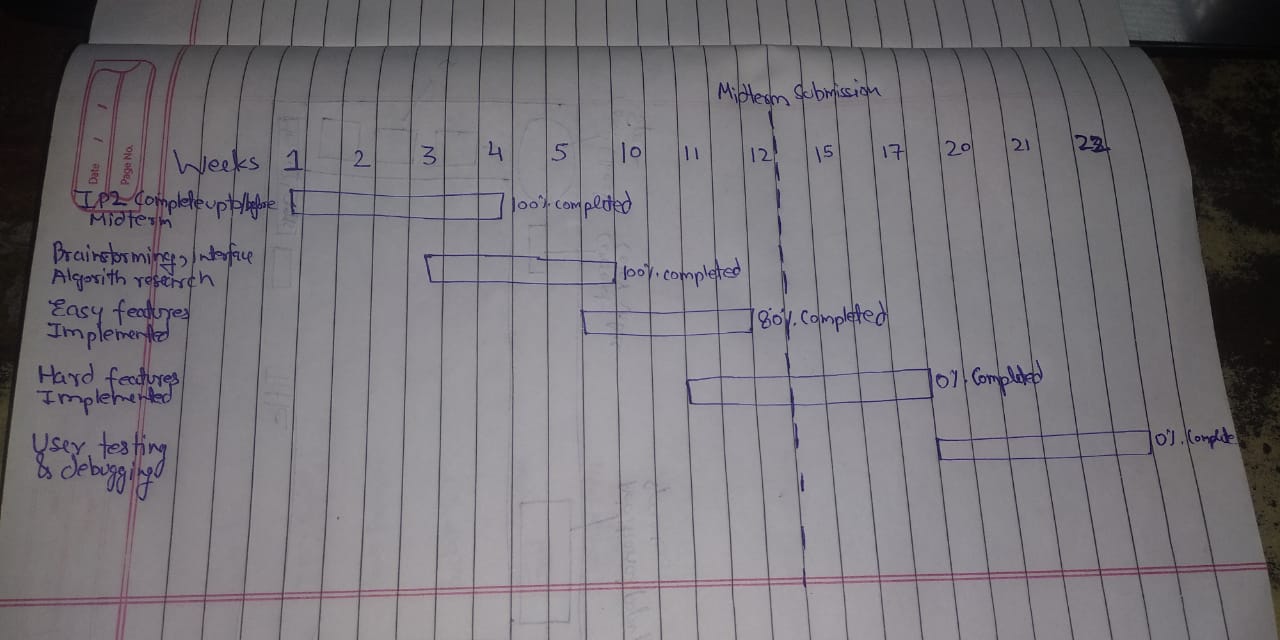 Midterm Submission
Date / /
Page No.
Weeks 1 2 3 4 5 10 11 12 15 17 20 21 22
IP2 Complete upto/before
Midterm
100% completed
Brainstorming, Interface
Algorith research
100% completed
Easy features
Implemented
80% Completed
Hard features
Implemented
0% Completed
User testing
& debugging
0% Complete